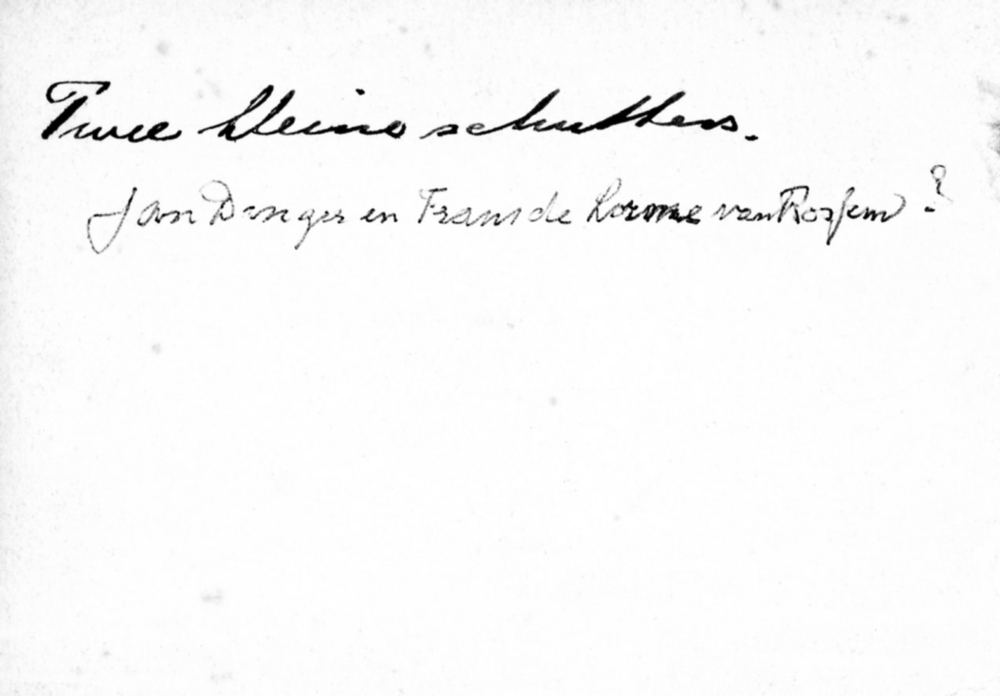 Twee kleine schutters.
Jan Dinger en Frans de Lorme van Rossem ?